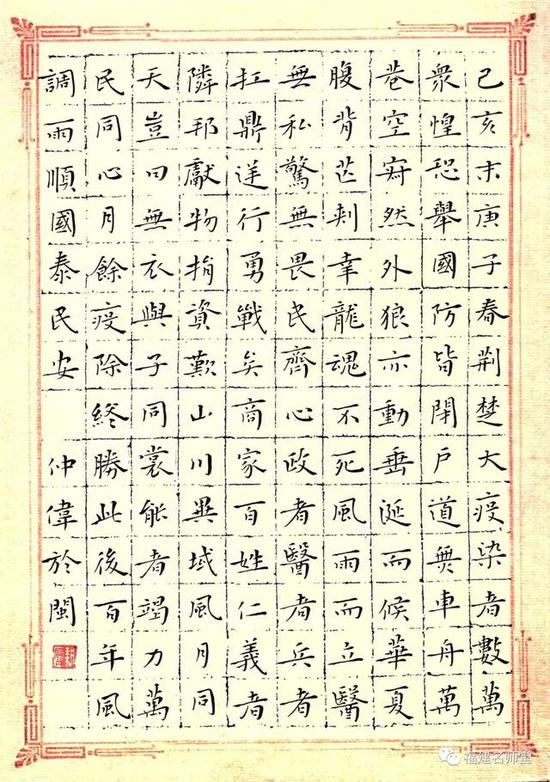 己亥末庚子春荆楚大疫染者數萬
衆惶恐舉國防皆閉戶道無車舟萬
巷空寂然外狼亦動垂涎而候華夏
腹背芒刺幸龍魂不死風雨而立醫
無私驚無畏民齊心政者醫者兵者
扛鼎逆行勇戰矣商家百姓仁義者
隣邦獻物捐資歎山川異域風月同
天豈曰無衣與子同裳能者竭力萬
民同心月餘疫除終勝此後百年風
調雨順國泰民安 仲偉於閩
福建名师堂